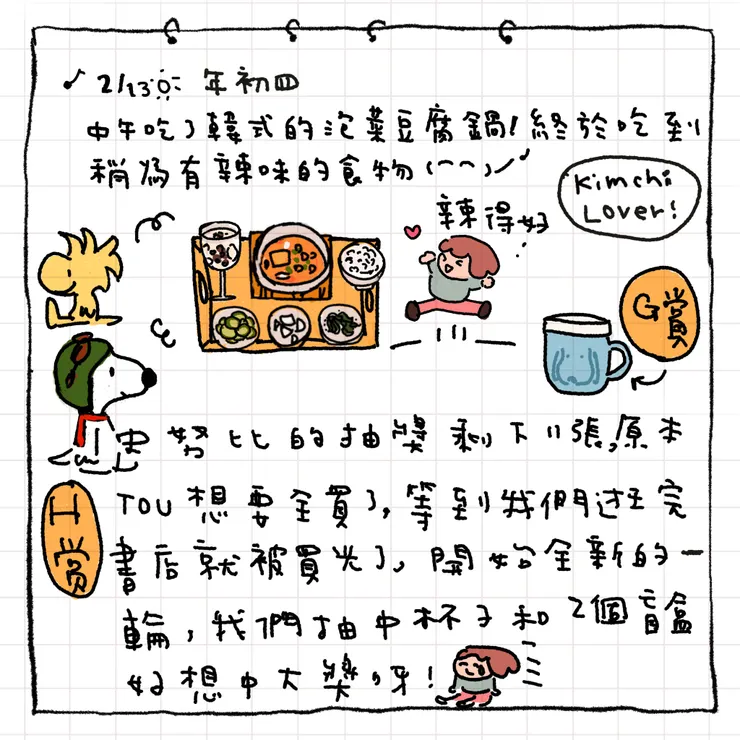 2/13 年初四
中午吃了韓式的泡菜豆腐鍋!終於吃到
稍為有辣味的食物(⌒⌒)♪
Kimchi
Lover!
辣得好
G賞
史努比的抽獎剩下11張,原本
I賞
TOU想要全買了,等到我們逛完
書店就被買光了,開始全新的一
輪,我們抽中杯子和2個盲盒
好想中大獎呀!